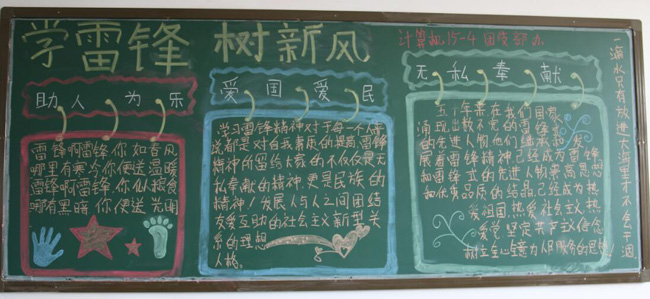 学雷锋 树新风
计算机15-4团支部办
助人为乐
雷锋啊雷锋你如春风
哪里有寒冷你便送温暖
雷锋啊雷锋你似粮食
哪有黑暗你便送光明
爱国爱民
学习雷锋精神对于每一个人来
说都是对自我素质的提高,雷锋
精神的留给大家的不仅仅是无
私奉献的精神,更是民族的
精神!发展人与人之间团结
友爱互助的社会主义新型关
系的理想
人格。
无私奉献
五十年来在我们国家
涌现出数不完的雷锋式
的先进人物他们继承和发
展着雷锋精神已经成为雷锋
和雷锋式的先进人物崇高思想
和优秀品质的结晶已经成为热
爱祖国热爱社会主义热
爱党坚定共产主义信念
树立全心全意为人民服务的
一滴水只有放进大海里才不会干涸